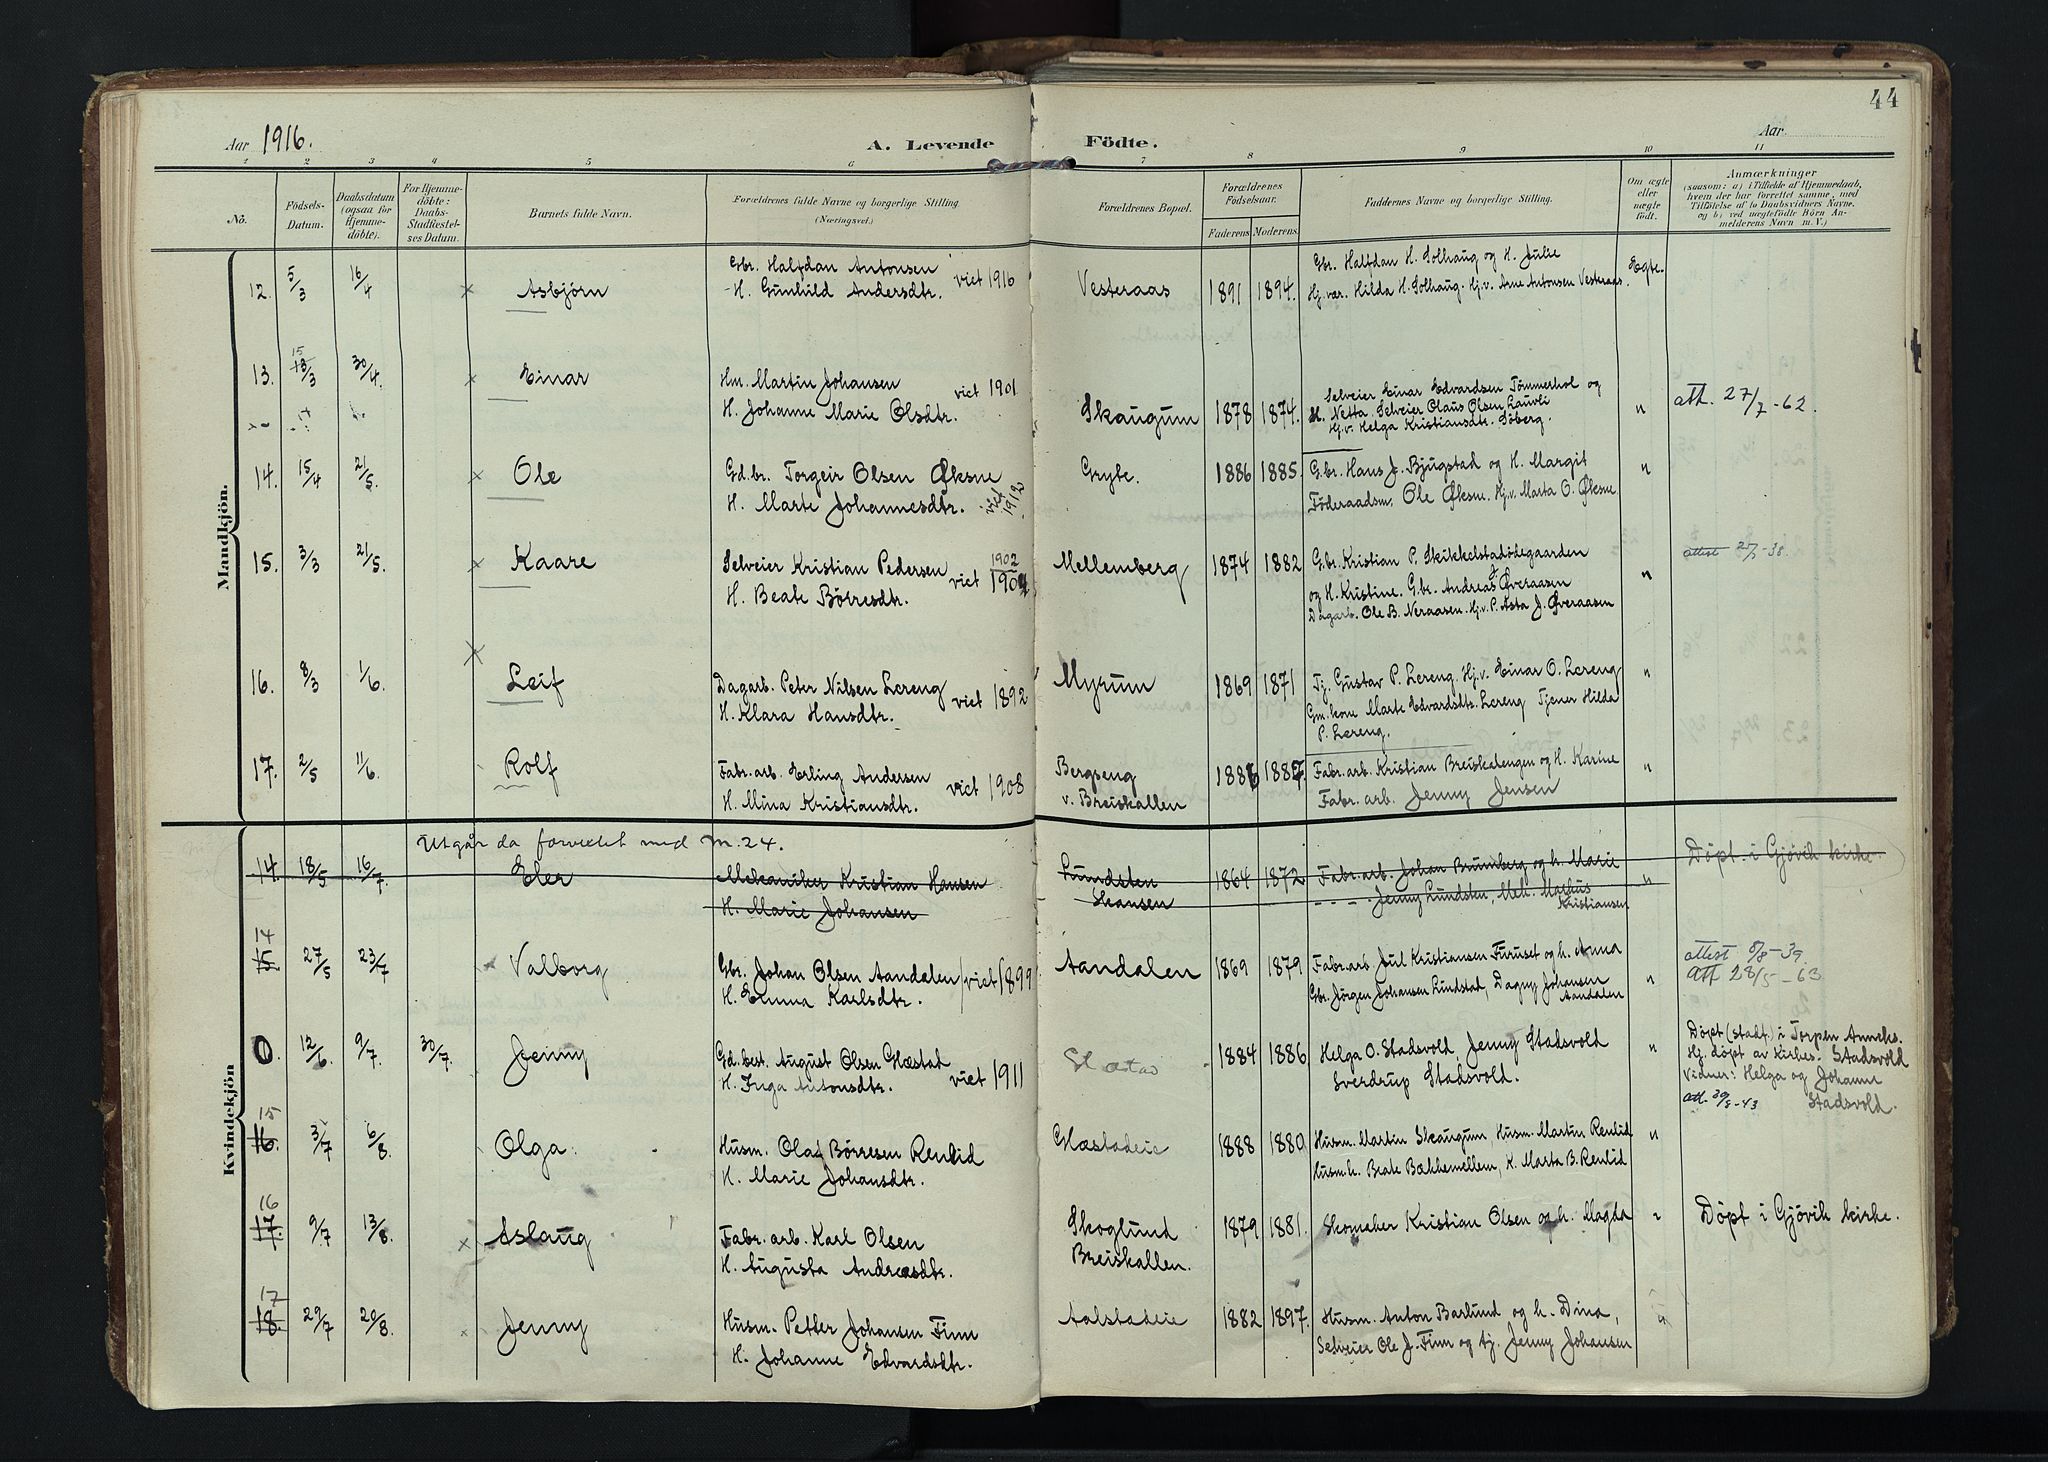 44
Aar 1916.
A. Levende
Födte.
Aar
1 2 3 4 5 6 7 8 9 10 11
No.
Födsels-
Datum.
Daabsdatum
(ogsaa for
Hjemme-
döbte).
For Hjemme-
döbte:
Daabs-
Stadfæstel-
ses Datum.
Barnets fulde Navn.
Forældrenes fulde Navne og borgerlige Stilling
(Næringsvei.)
Forældrenes Bopæl.
Forældrenes
Födselsaar.
Faderens Moderens.
Faddernes Navne og borgerlige Stilling.
Om ægte
eller
uægte
födt.
Anmærkninger
(saasom: a) i Tilfælde af Hjemmedaab,
hvem der har forrettet samme, med
Tilföielse af to Daabsvidners Navne,
og b) ved uægtefödte Börn An-
melderens Navn m. V.)
Mandkjön.
12. 5/3 16/4 Asbjørn
Gbr. Halfdan Antonsen
H. Gunhild Andersdtr. viet 1916
Vesteraas 1891 1894.
Gbr. Halfdan H. Solhaug og H. Julie
Hj.vær. Hilda H. Solhaug. Hj.v. Arne Antonsen Vesteraas.
Egte.
13. 15 13/3 30/4. Einar
Hm. Martin Johansen
H. Johanne Marie Olsdtr. viet 1901
Skaugum 1878 1874.
Selveier Einar Edvardsen Tømmerhol og
H. Netta. Selveier Olaus Olsen Lauvli
Hj.v. Helga Kristiansdtr. Søberg.
" att. 27/7-62.
14. 15/4 21/5. Ole
Gd.br. Torgeir Olsen Øksne
H. Marte Johannesdtr. viet 1912
Grybe. 1886 1885.
G.br. Hans J. Bjugstad og H. Margit
Føderaadsm. Ole Øksne. Hj.v. Marta O. Øksne
"
15. 3/3 21/5. Kaare
Selveier Kristian Pedersen
H. Beate Børresdtr. viet 1902
1904
Mellemberg 1874 1882
G.br. Kristian P. Skikkelstadødegaarden
og H. Kristine. G.br. Andreas J. Øveraasen
Dagarb. Ole B. Neraasen. Hj.v. P. Asta J. Øveraasen
"
16. 8/3 1/6. Leif
Dagarb. Peter Nilsen Lereng
H. Klara Hansdtr. viet 1892
Myrum 1869 1871
Tj. Gustav P. Lereng. Hj.v. Einar O. Lereng
Gm.kone Marte Edvardsdtr. Lereng Tjener Hilda
P. Lereng.
"
17. 2/5 11/6. Rolf
Fabr.arb. Erling Andersen
H. Mina Kristiansdtr. viet 1908
Bergseng
v. Breiskallen
1886 1887.
Fabr.arb. Kristian Breiskalengen og H. Karine
Fabr.arb. Jenny Jensen
"
Kvindekjön
Utgår da forvexlet med M. 24.
14. 18/5 16/7.
Mekaniker Kristian Hansen
H. Marie Johansen
Lundsten
Skansen
1864 1872
Fabr.arb. Johan Brumberg og h. Marie
Jenny Lundsten, Mek. Markus
Kristiansen
" Døpt i Gjøvik kirke.
14
15. 27/5 23/7 Valborg
Gbr. Johan Olsen Aandalen
H. Emma Karlsdtr. viet 1899
Aandalen 1869 1879
Fabr.arb. Jul Kristiansen Furuset og h. Anna
Gbr. Jørgen Johansen Lundstad, Dagny Johansen
Aandalen
" attest 8/8-39.
att 28/5-63
0. 12/6. 9/7. 30/7. Jenny
Gd.best. August Olsen Glæstad
H. Inga Antonsdtr. viet 1911
1884 1886
Helga O. Stadsvold, Jenny Stadsvold
Sverdrup Stadsvold.
"
Døpt (stadf.) i Torpen Anneks.
Hj. døpt av kirkes. Stadsvold
Vidner: Helga og Johanne
Stadsvold.
15
16. 3/7 6/8. Olga
Husm. Olaf Børresen Renlid
H. Marie Johansdtr.
Glæstadeie 1888 1880
Husm. Martin Skaugum, Husm. Martin Renlid
Husm.h. Beate Bækkemellem, K. Marta B. Renlid
"
16
17. 9/7 13/8. Aslaug
Fabr.arb. Karl Olsen
H. Augusta Andreasdtr.
Skoglund
Breiskallen.
1879 1881.
Skomaker Kristian Olsen og h. Magda
" Døpt i Gjøvik kirke.
17
18. 29/7 20/8. Jenny
Husm. Petter Johansen Finn
H. Johanne Edvardsdtr.
Aalstadeie 1882 1897.
Husm. Anton Barlund og h. Dina,
Selveier Ole J. Finn og tj. Jenny Johansen
"